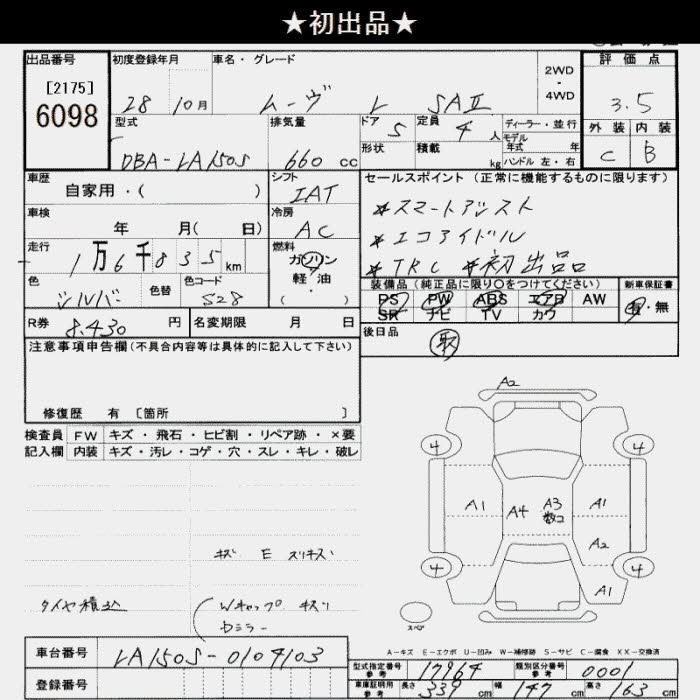 ★初出品★
出品番号 初度登録年月 車名・グレード 2WD - 4WD 評価点
[2175]
6098
28 10月 ムーヴ L SAⅡ 3.5
型式 排気量 ドア 5 定員 4人 ディーラー・並行 外装 内装
DBA-LA150S 660cc 形状 積載 kg モデル年式 年 ハンドル 左・右 C B
車歴 自家用・( ) シフト IAT セールスポイント(正常に機能するものに限ります)
車検 年 月( 日) 冷房 AC *スマートアシスト
走行 1万6千835km 燃料 ガソリン 軽油 ・( ) *エコアイドル
*TRC *初出品
色 シルバー 色替 色コード S28 装備品(純正品に限り〇をつけてください) 新車保証書
PS PW ABS エアB AW 有・無
SR ナビ TV カワ
R券 8,430円 名変期限 月 日 後日品
取
注意事項申告欄(不具合内容等は具体的に記入して下さい)
修復歴 有 [箇所 ]
検査員 FW キズ・飛石・ヒビ割・リペア跡・×要
記入欄 内装 キズ・汚レ・コゲ・穴・スレ・キレ・破レ
A2
4 4
A1 A4 A3 数コ A1
A2
4 4
A1
キズ E スリキズ
タイヤ積込 Wキャップ キズ
Dミラー
スペア
A-キズ E-エクボ U-凹み W-補修跡 S-サビ C-腐食 XX-交換済
車台番号 LA150S-0104103
登録番号
型式指定番号 参考 17964 類別区分番号 参考 0001
車庫証明用 参考 長さ 339cm 幅 147cm 高さ 163cm